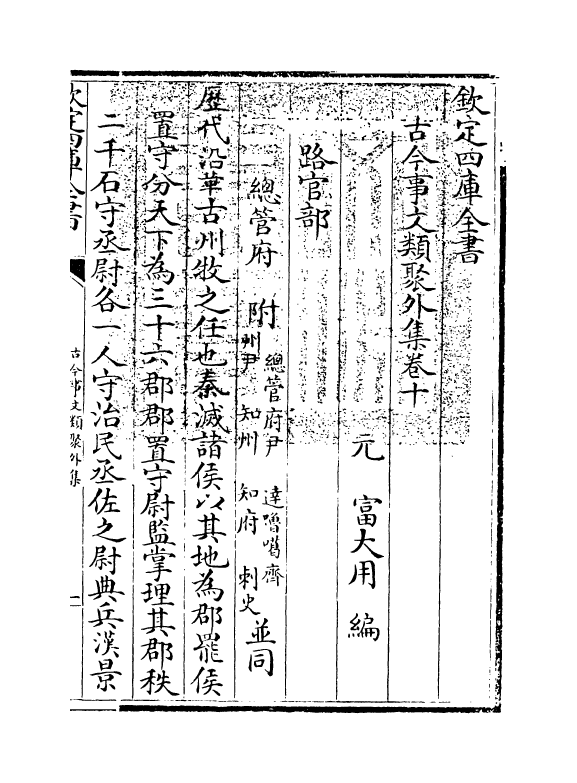 欽定四庫全書
古今事文類聚外集卷十
元 富大用 編
路官部
總管府 附 總管府尹 達嚕噶齊
州尹 知州 知府 刺史 並同
歷代沿革古州牧之任也秦滅諸侯以其地為郡罷侯
置守分天下為三十六郡郡置守尉監掌理其郡秩
二千石守丞尉各一人守治民丞佐之尉典兵漢景
欽定四庫全書
古今事文類聚外集
一